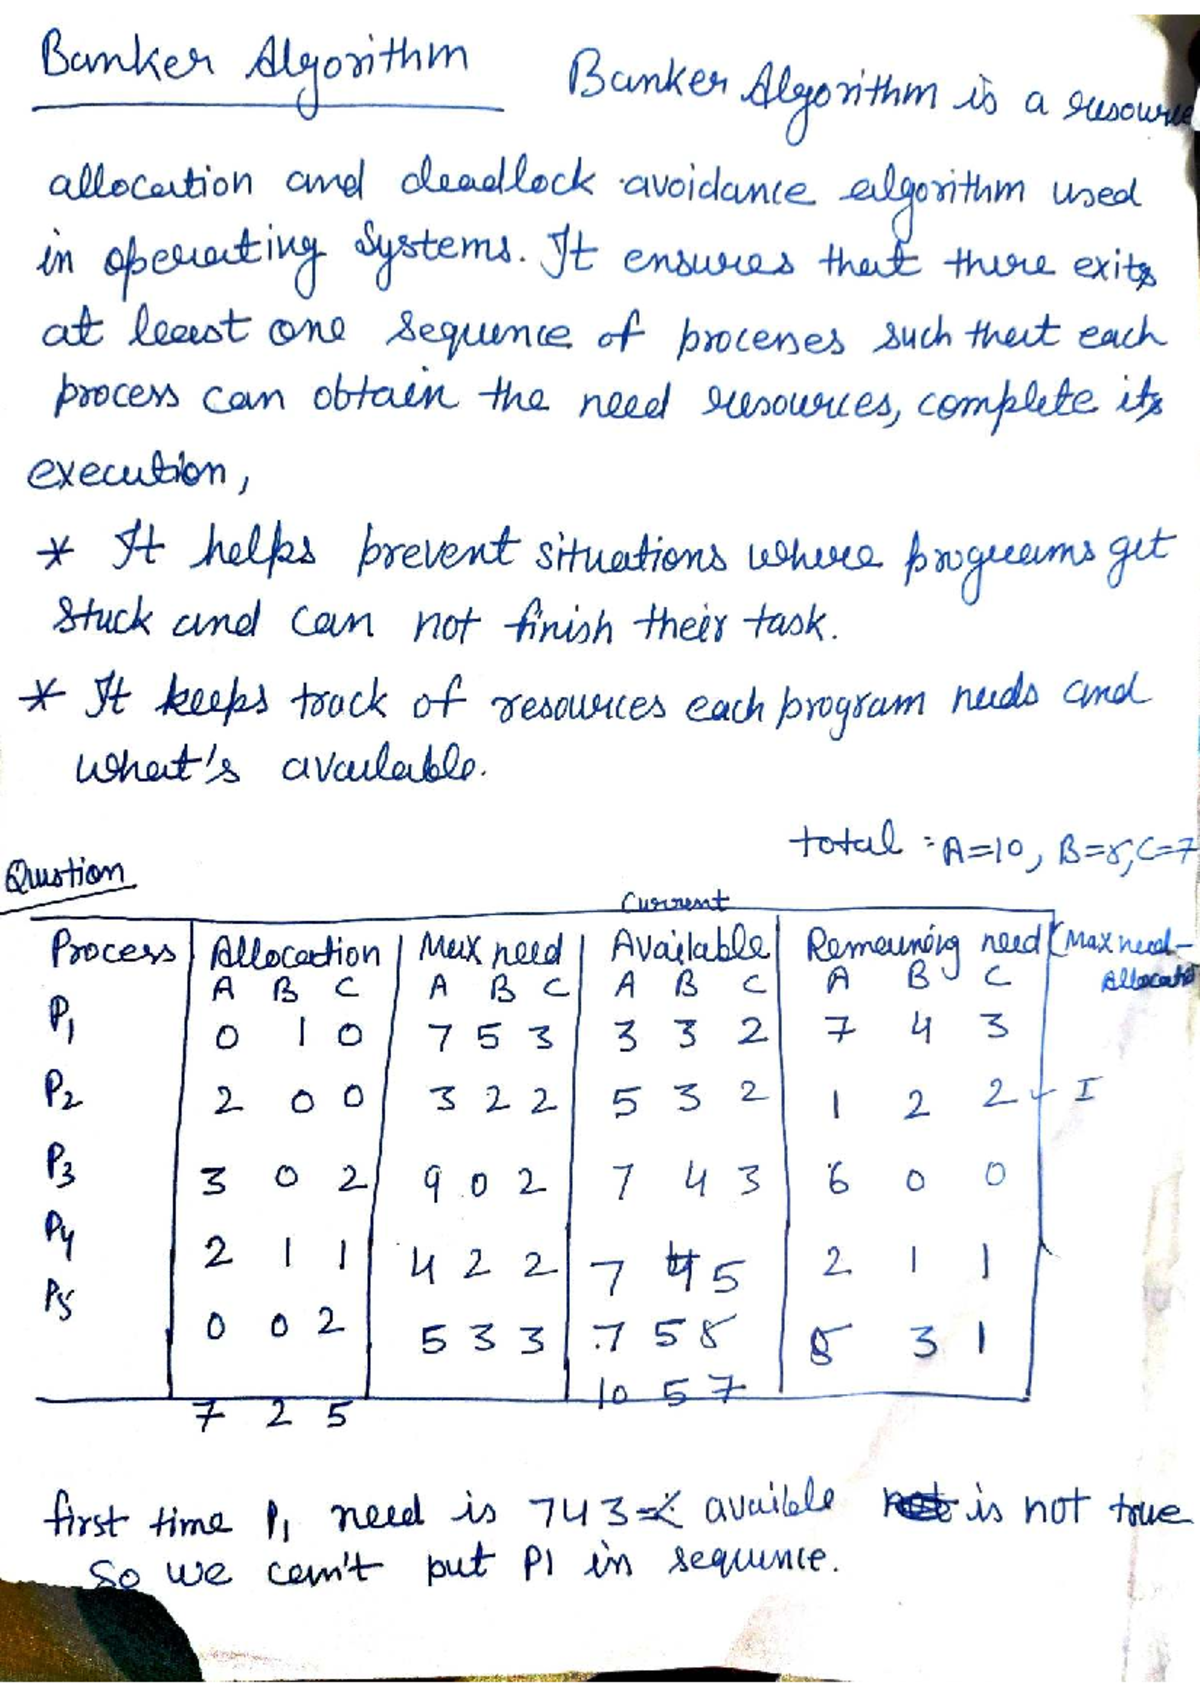 Banker Algorithm Banker Algorithm is a resource
allocation and deadlock avoidance algorithm used
in operating Systems. It ensures that there exits
at least one sequence of processes such that each
process can obtain the need resources, complete its
execution,
* It helps prevent situations where programs get
stuck and can not finish their task.
* It keeps track of resources each program needs and
what's available.
total : A=10, B=5, C=7
Question
Current
Process Allocation Max need Available Remaining need (Max need-
A B C A B C A B C A B C Allocatio
P1 0 1 0 7 5 3 3 3 2 7 4 3
P2 2 0 0 3 2 2 5 3 2 1 2 2 ← I
P3 3 0 2 9 0 2 7 4 3 6 0 0
P4 2 1 1 4 2 2 7 4 5 2 1 1
P5 0 0 2 5 3 3 7 5 5 5 3 1
10 5 7
7 2 5
first time P1 need is 743 ≤ availble is not true
So we can't put P1 in sequence.